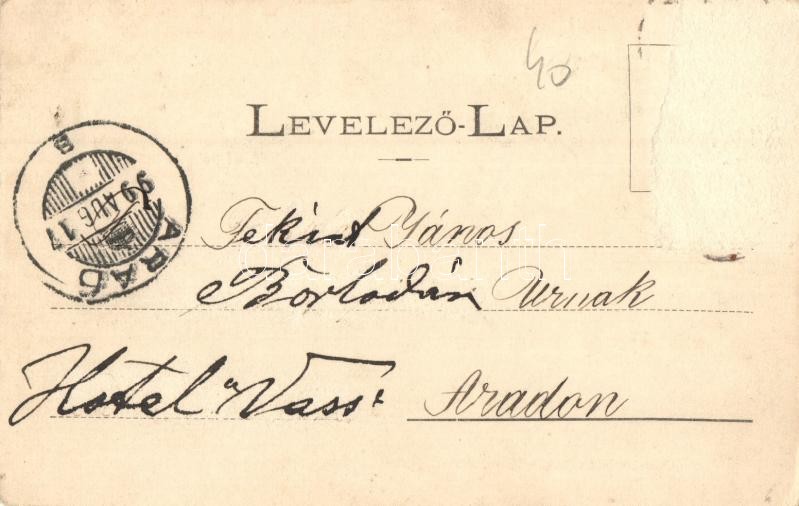 40
LEVELEZŐ-LAP.
ARAD
99 AUG 17
János
Urnak
Hotel "Vass"
Aradon